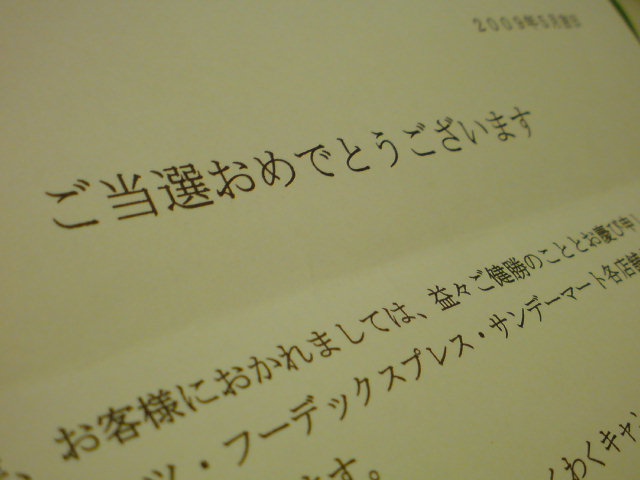 2009年5月吉日
ご当選おめでとうございます
お客様におかれましては、益々ご健勝のこととお慶び申し
ツ・フーデックスプレス・サンデーマート各店舗
ます。
くわくキャン